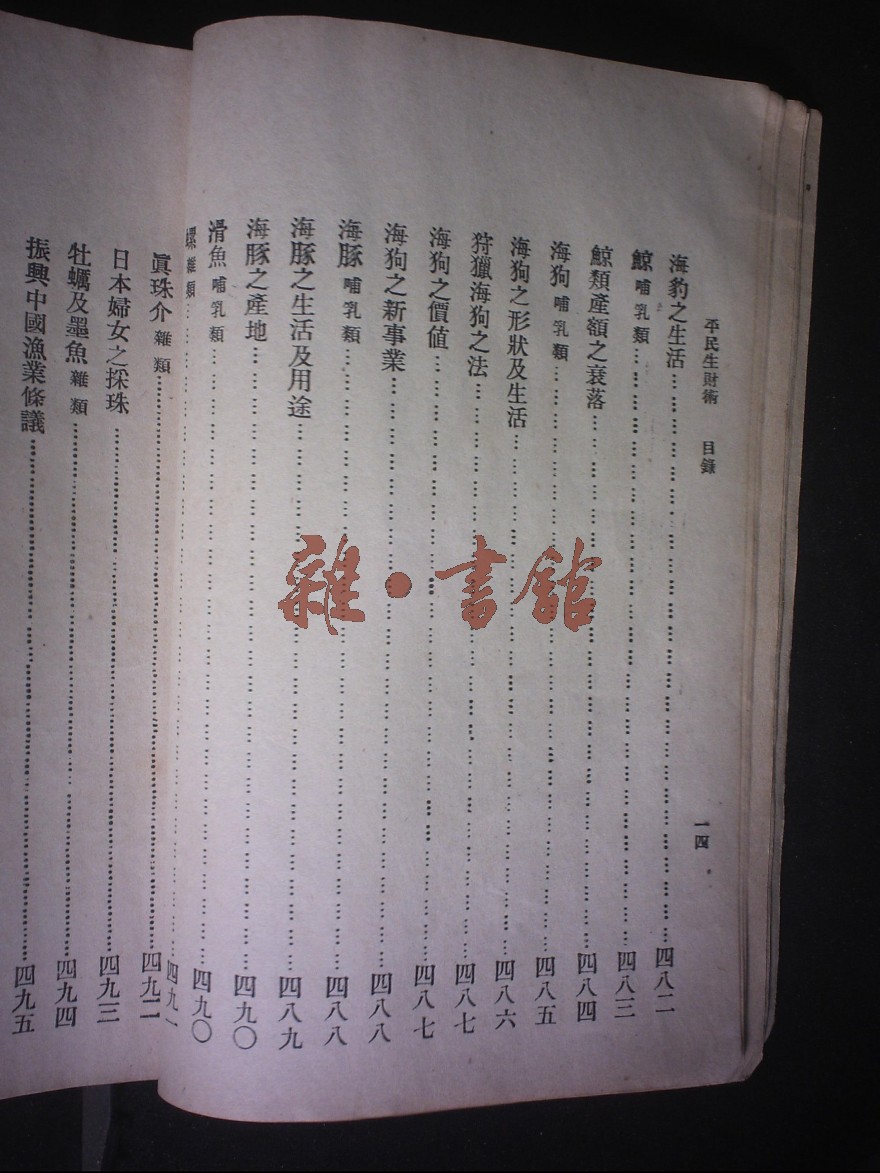 平民生財術 目錄 一四
海豹之生活………四八二
鯨 哺乳類………四八三
鯨類產額之衰落………四八四
海狗 哺乳類………四八五
海狗之形狀及生活………四八六
狩獵海狗之法………四八七
海狗之價值………四八七
海狗之新事業………四八八
海豚 哺乳類………四八八
海豚之生活及用途………四八九
海豚之產地………四九〇
滑魚 哺乳類………四九〇
螺 雜類………四九一
眞珠介 雜類………四九二
日本婦女之採珠………四九三
牡蠣及墨魚 雜類………四九四
振興中國漁業條議………四九五
雜·書館